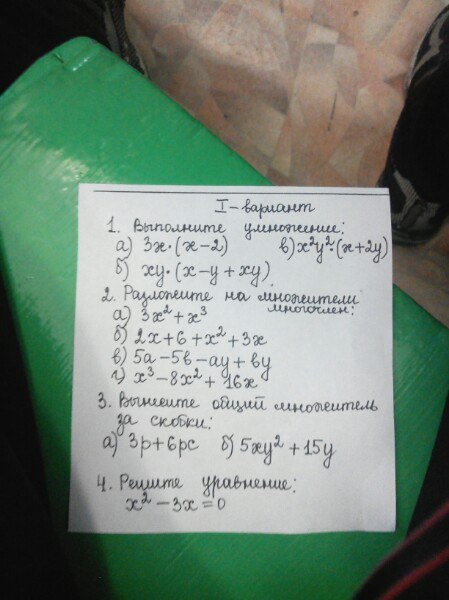 I-вариант
1. Выполните умножение:
а) 3x·(x-2) в) x²y²·(x+2y)
б) xy·(x-y+xy)
2. Разложите на множители
многочлен:
а) 3x²+x³
б) 2x+6+x²+3x
в) 5a-5b-ay+by
г) x³-8x²+16x
3. Вынесите общий множитель
за скобки:
а) 3p+6pc б) 5xy²+15y
4. Решите уравнение:
x²-3x=0